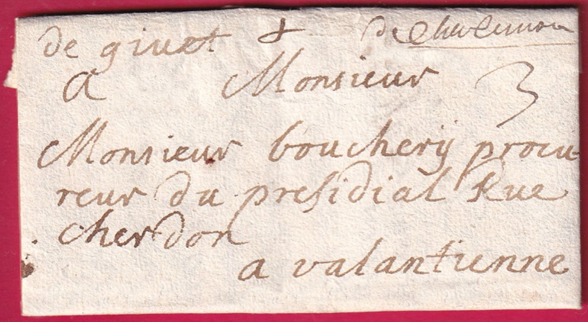 de givet + de Charlemon
a Monsieur 3
Monsieur bouchery procu-
reur du presidial Rue
cherdon
a valantienne